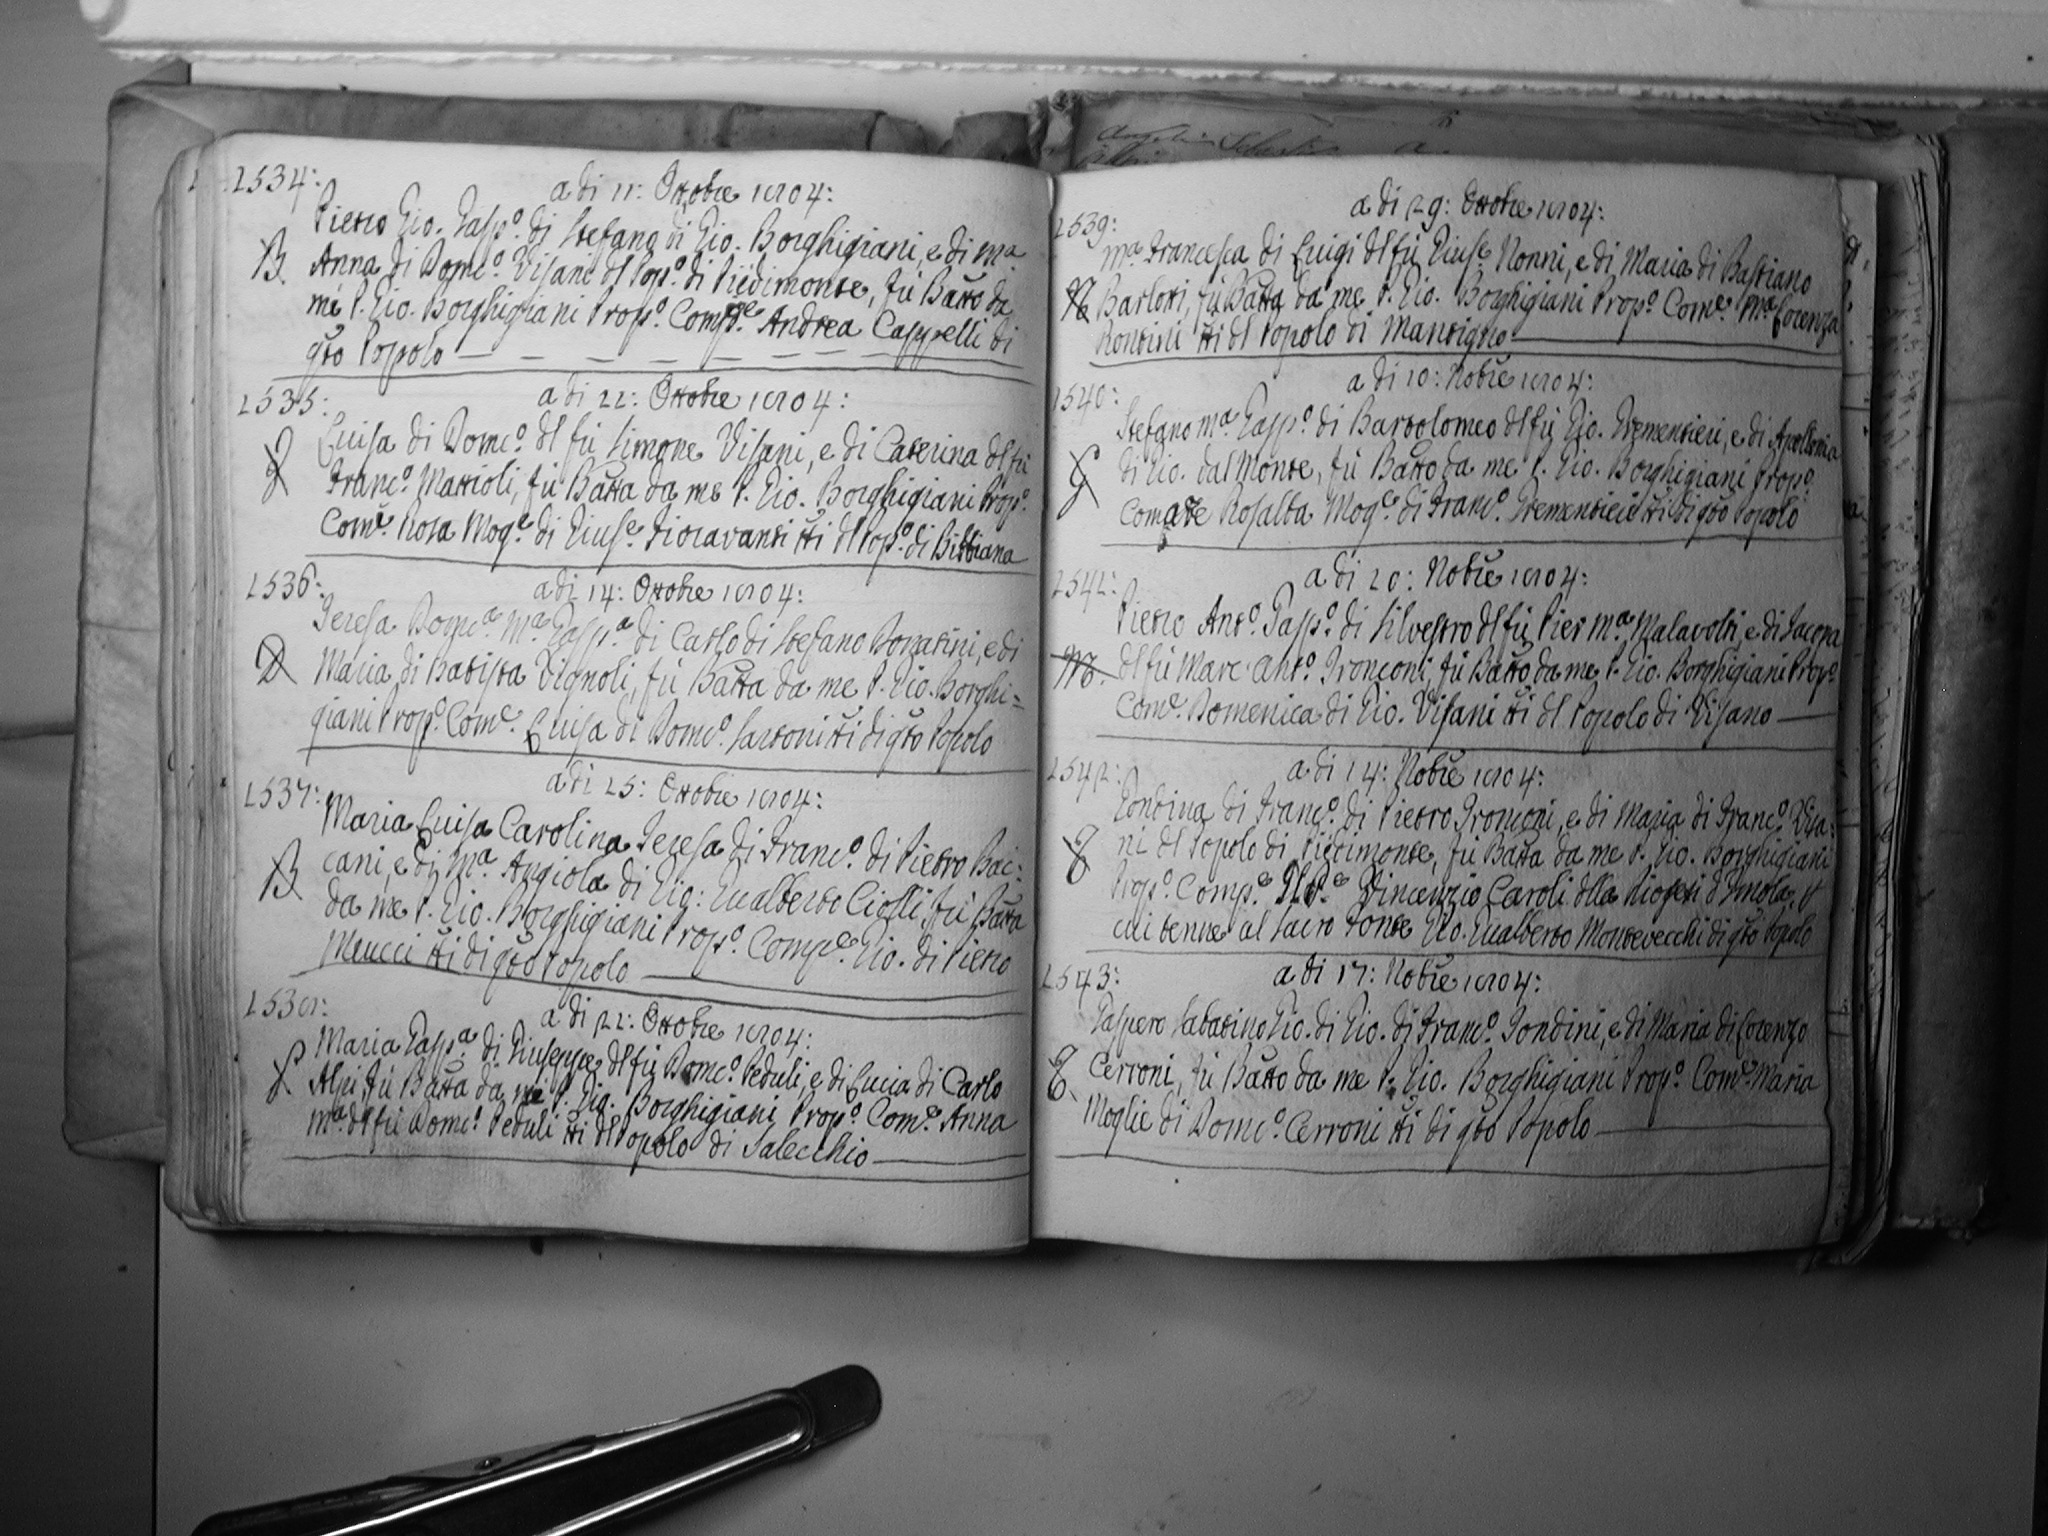 2534:
a di 11: Ottobre 1804:
Pietro Gio. Gasp.º di Stefano di Gio. Borghigiani, e di Mª
B Anna di Domc.º Visani dl Pop.º di Piedimonte, fù Batto da
me P. Gio. Borghigiani Prop.º Comp.e Andrea Cappelli di
qto Popolo
2535:
a di 12: Ottobre 1804:
Luisa di Domc.º dl fù Simone Visani, e di Caterina dl fù
Franc.º Mattioli, fù Batta da me P. Gio. Borghigiani Prop.º
Com.e Rosa Mog.e di Gius.e Fioravanti tti dl Pop.º di Bibbiana
2536:
a di 14: Ottobre 1804:
Teresa Domc.a Mª Gasp.a di Carlo di Stefano Donatini, e di
D Maria di Batista Vignoli, fù Batta da me P. Gio. Borghi=
giani Prop.º Com.e Luisa di Domc.º Sartoni tti di qto Popolo
2537:
a di 15: Ottobre 1804:
Maria Luisa Carolina Teresa di Franc.º di Pietro Bac:
B cani, e di Mª Angiola di Gio: Gualberto Ciolli, fù Batta
da me P. Gio. Borghigiani Prop.º Comp.e Gio. di Pietro
Meucci tti di qto Popolo
2538:
a di 22: Ottobre 1804:
Maria Gasp.a di Giuseppe dl fù Domc.º Peduli, e di Lucia di Carlo
Alpi, fù Batta da me P. Gio. Borghigiani Prop.º Com.e Anna
Mª dl fù Domc.º Peduli tti dl Popolo di Salecchio
a di 29: Ottobre 1804:
2539:
Mª Francesca di Luigi dl fù Gius.e Nonni, e di Maria di Bastiano
N Barlotti, fù Batta da me P. Gio. Borghigiani Prop.º Com.e Mª Lorenza
Rontini tti dl Popolo di Mantigno
a di 10: Nobre 1804:
2540:
Stefano Mª Gasp.º di Bartolomeo dl fù Gio. Trementieri, e di Apollonia
di Gio. dal Monte, fù Batto da me P. Gio. Borghigiani Prop.º
Comare Rosalba Mog.e di Franc.º Trementieri tti di qto Popolo
a di 10: Nobre 1804:
2541:
Pietro Ant.º Gasp.º di Silvestro dl fù Pier Mª Malavolti, e di Jacopa
M. dl fù Marc Ant.º Tronconi, fù Batto da me P. Gio. Borghigiani Prop.º
Com.e Domenica di Gio. Visani tti dl Popolo di Visano
a di 14: Nobre 1804:
2542:
di Franc.º di Pietro Tronconi, e di Maria di Franc.º Visa:
ni dl Popolo di Piedimonte, fù Batta da me P. Gio. Borghigiani
Prop.º Comp.e Vincenzio Caroli dlla Diocesi d'Imola,
cui tenne al Sacro Fonte Gio. Gualberto Montevecchi di qto Popolo
a di 17: Nobre 1804:
2543:
Gaspero Sabatino Gio. di Gio. di Franc.º Tondini, e di Maria di Lorenzo
Cerroni, fù Batto da me P. Gio. Borghigiani Prop.º Com.e Maria
Moglie di Domc.º Cerroni tti di qto Popolo